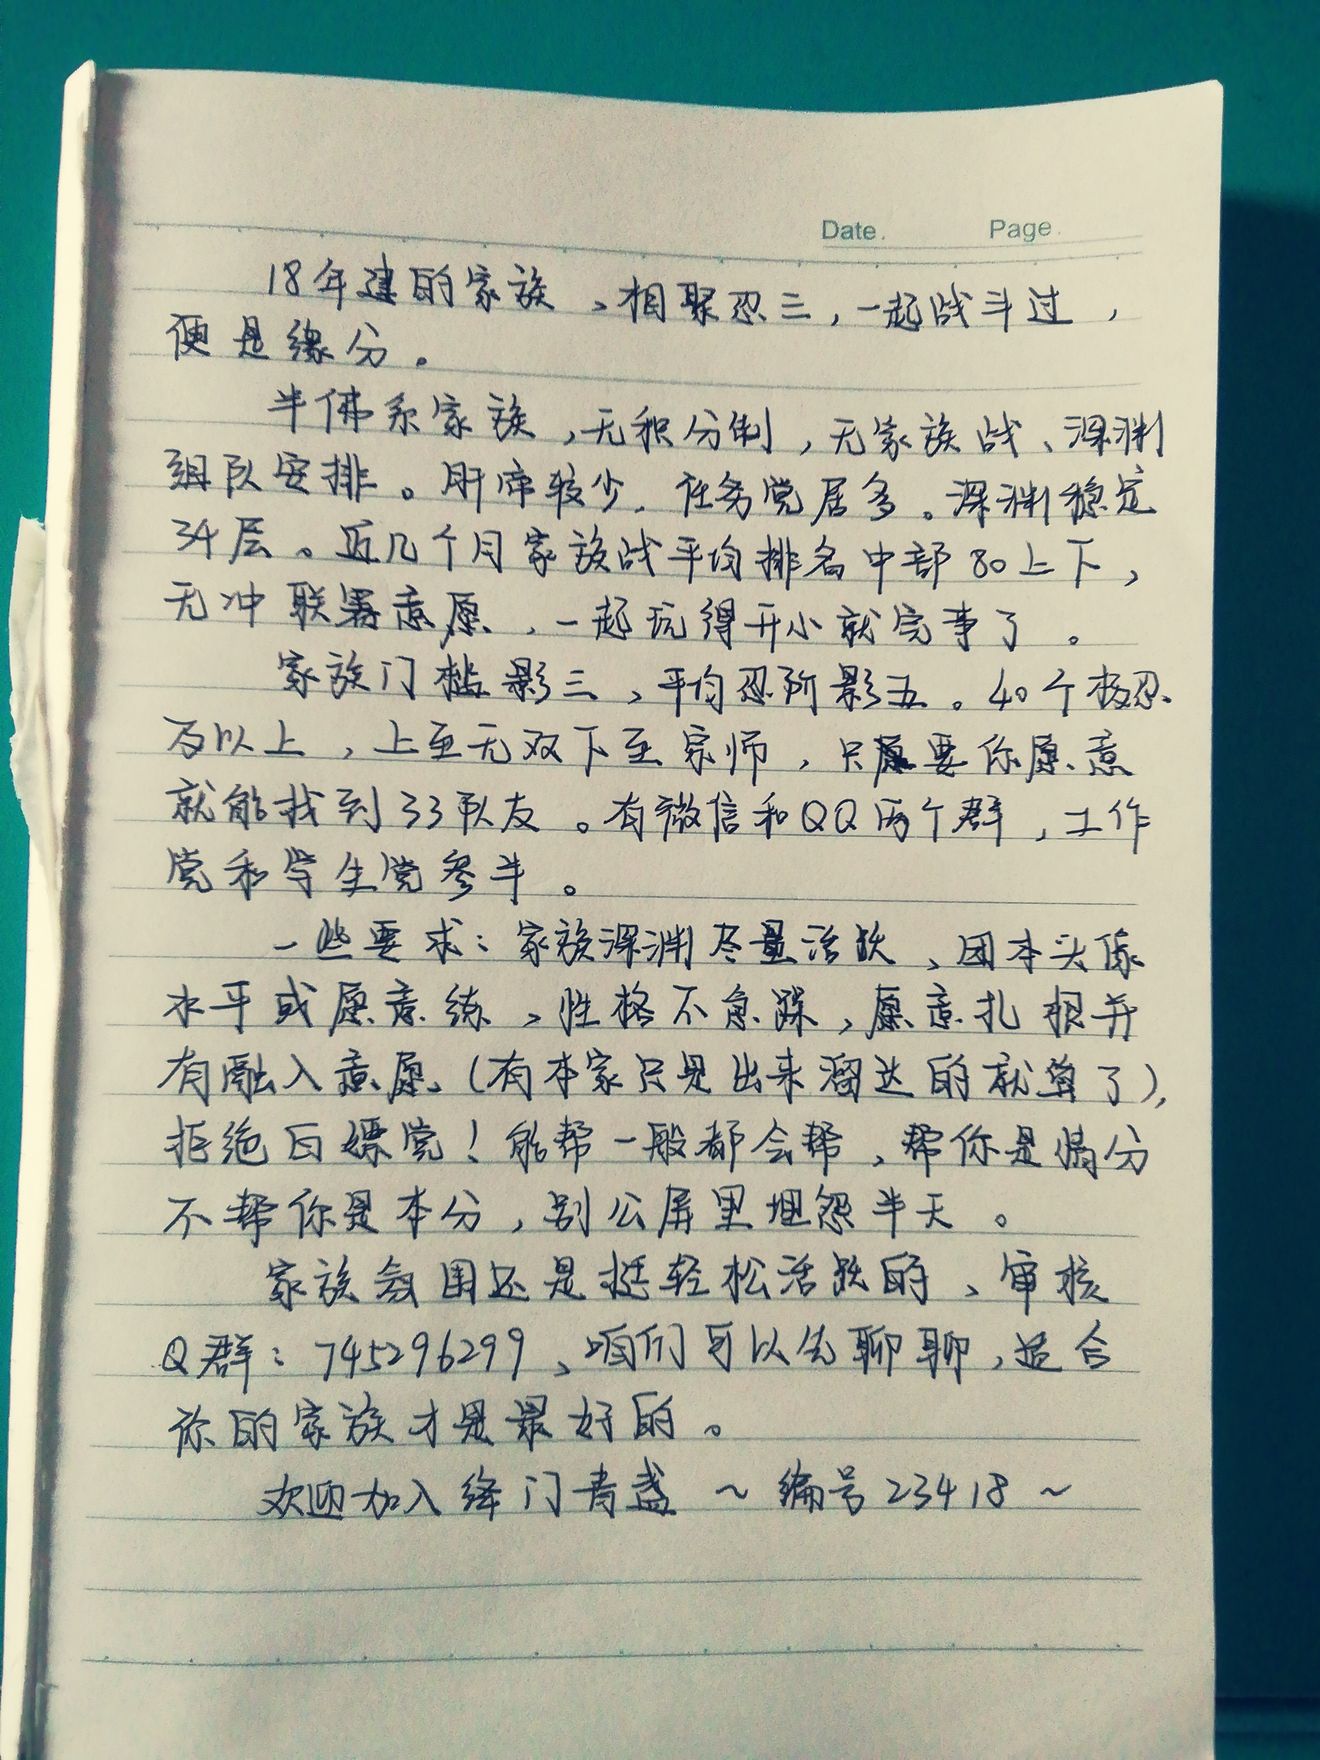 Date. Page.
18年建的家族、相聚忍三，一起战斗过，
便是缘分。
半佛系家族，无积分制，无家族战、深渊
组队安排。肝帝较少，任务党居多。深渊稳定
34层。近几个月家族战平均排名中部80上下，
无冲联赛意愿，一起玩得开心就完事了。
家族门槛影三，平均忍阶影五。40个极忍
及以上，上至无双下至宗师，只要你愿意
就能找到33队友。有微信和QQ两个群，工作
党和学生党参半。
一些要求：家族深渊尽量活跃、团本头像
水平或愿意练，性格不急躁，愿意扎根并
有融入意愿。(有本家只是出来溜达的就算了)，
拒绝白嫖党！能帮一般都会帮，帮你是情分
不帮你是本分，别公屏里埋怨半天。
家族氛围还是挺轻松活跃的、审核
Q群：745296299、咱们可以先聊聊，适合
你的家族才是最好的。
欢迎加入绛门青盏～编号23418～